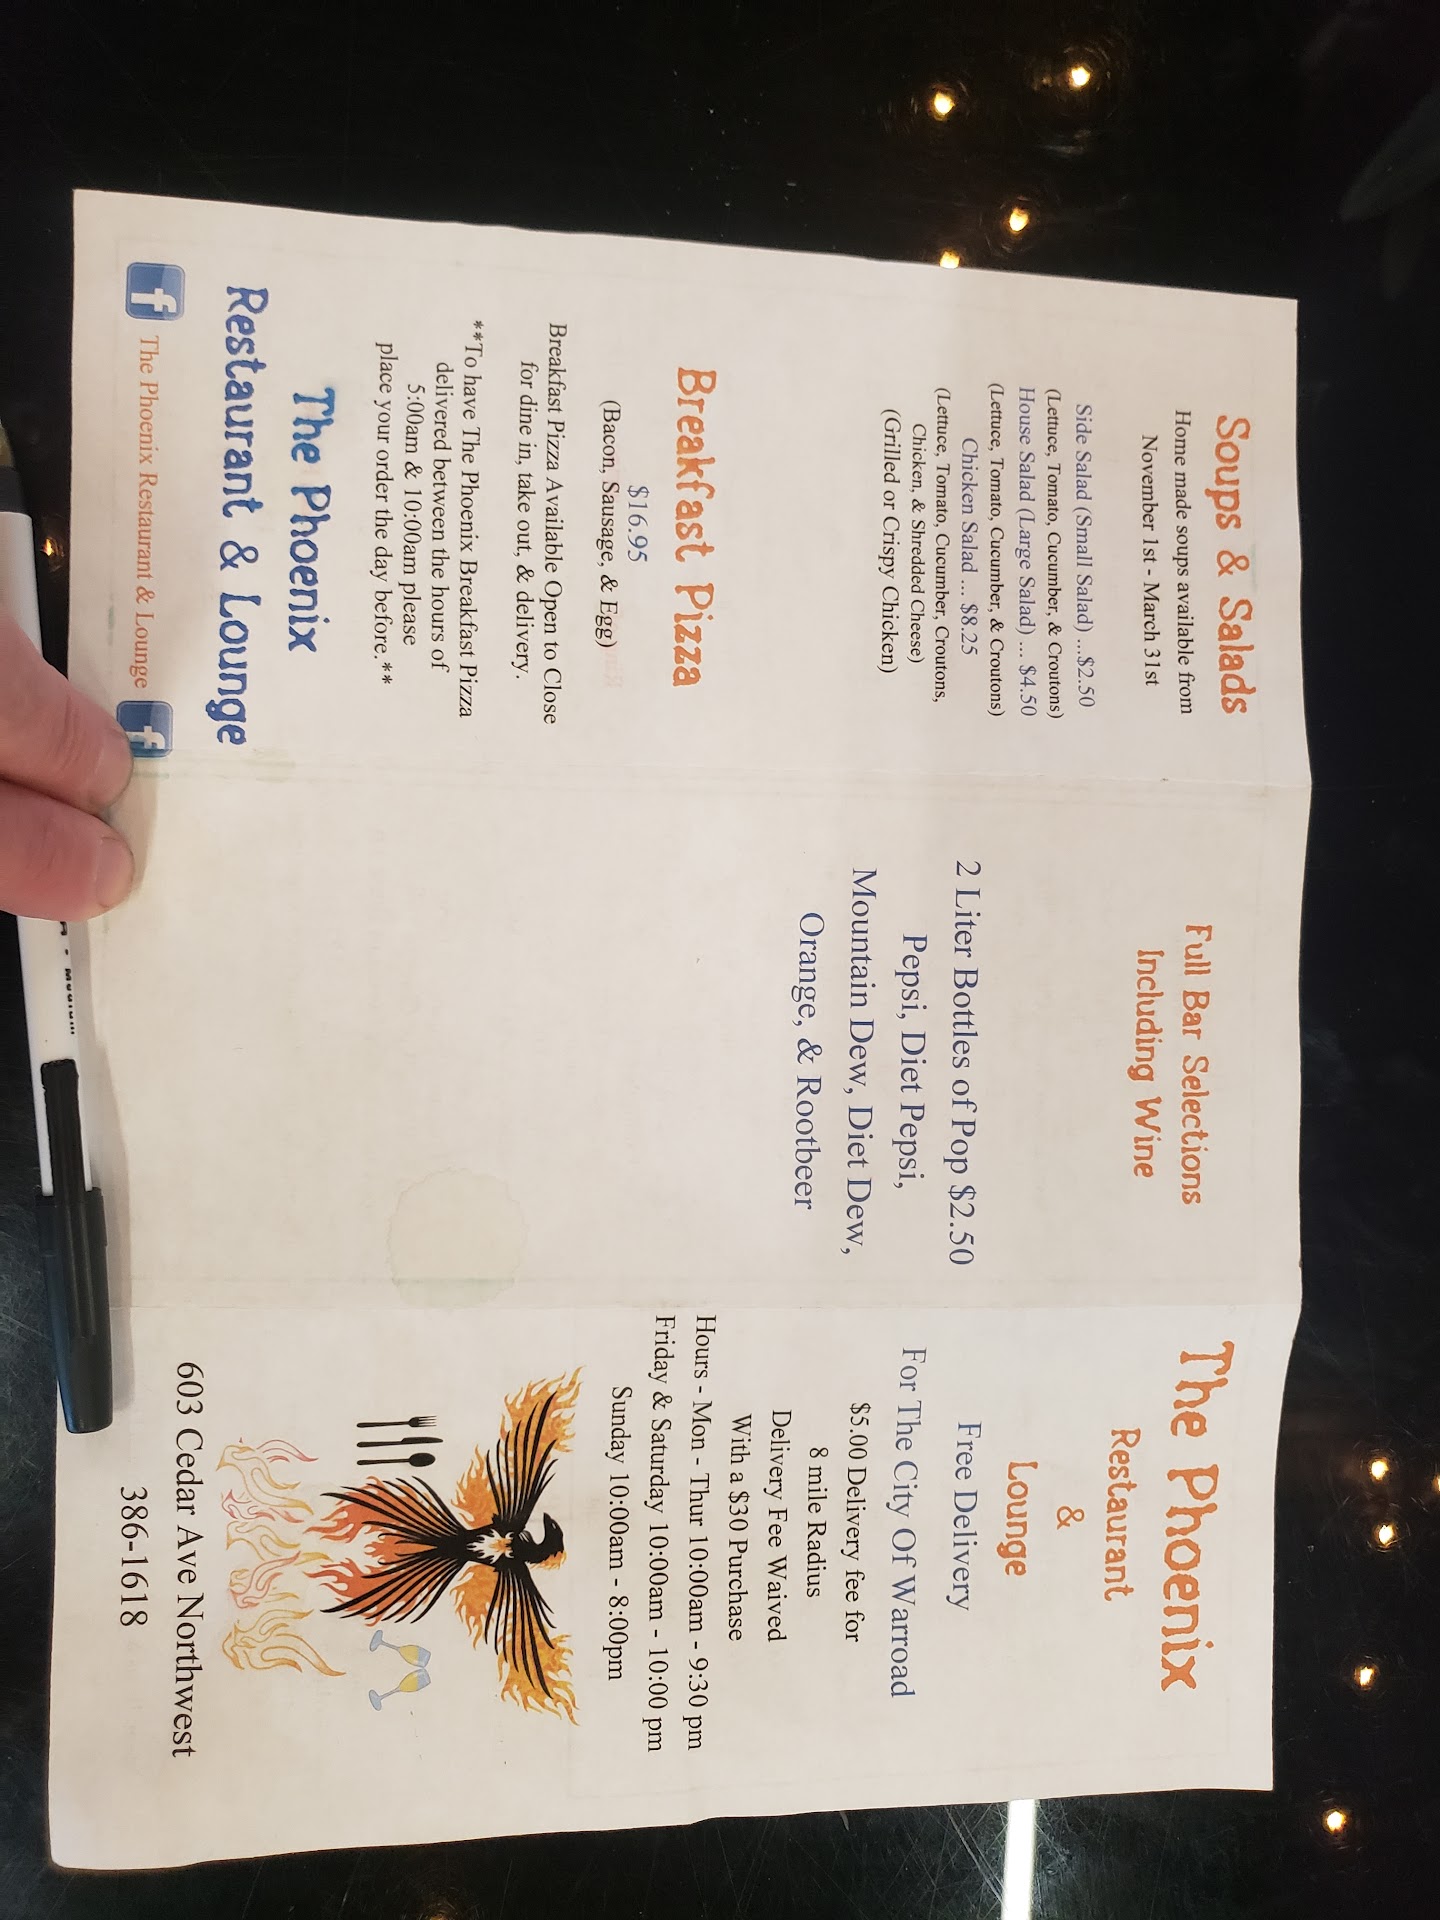 Soups & Salads
Home made soups available from
November 1st - March 31st
Side Salad (Small Salad) ...$2.50
(Lettuce, Tomato, Cucumber, & Croutons)
House Salad (Large Salad) ... $4.50
(Lettuce, Tomato, Cucumber, & Croutons)
Chicken Salad ... $8.25
(Lettuce, Tomato, Cucumber, Croutons,
Chicken, & Shredded Cheese)
(Grilled or Crispy Chicken)
Breakfast Pizza
$16.95
(Bacon, Sausage, & Egg)
Breakfast Pizza Available Open to Close
for dine in, take out, & delivery.
**To have The Phoenix Breakfast Pizza
delivered between the hours of
5:00am & 10:00am please
place your order the day before.**
The Phoenix
Restaurant & Lounge
f The Phoenix Restaurant & Lounge f
Full Bar Selections
Including Wine
2 Liter Bottles of Pop $2.50
Pepsi, Diet Pepsi,
Mountain Dew, Diet Dew,
Orange, & Rootbeer
The Phoenix
Restaurant
&
Lounge
Free Delivery
For The City Of Warroad
$5.00 Delivery fee for
8 mile Radius
Delivery Fee Waived
With a $30 Purchase
Hours - Mon - Thur 10:00am - 9:30 pm
Friday & Saturday 10:00am - 10:00 pm
Sunday 10:00am - 8:00pm
603 Cedar Ave Northwest
386-1618